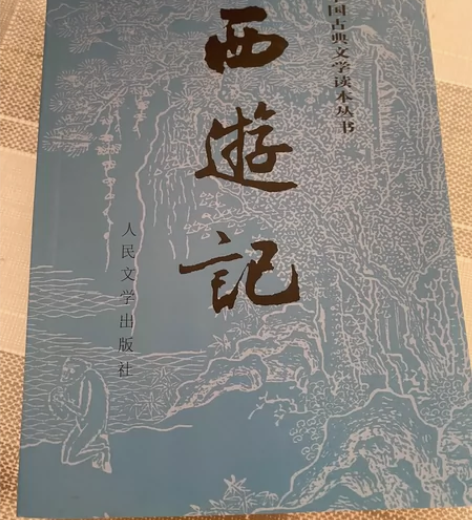 国古典文学读本丛书
西遊記
人民文学出版社